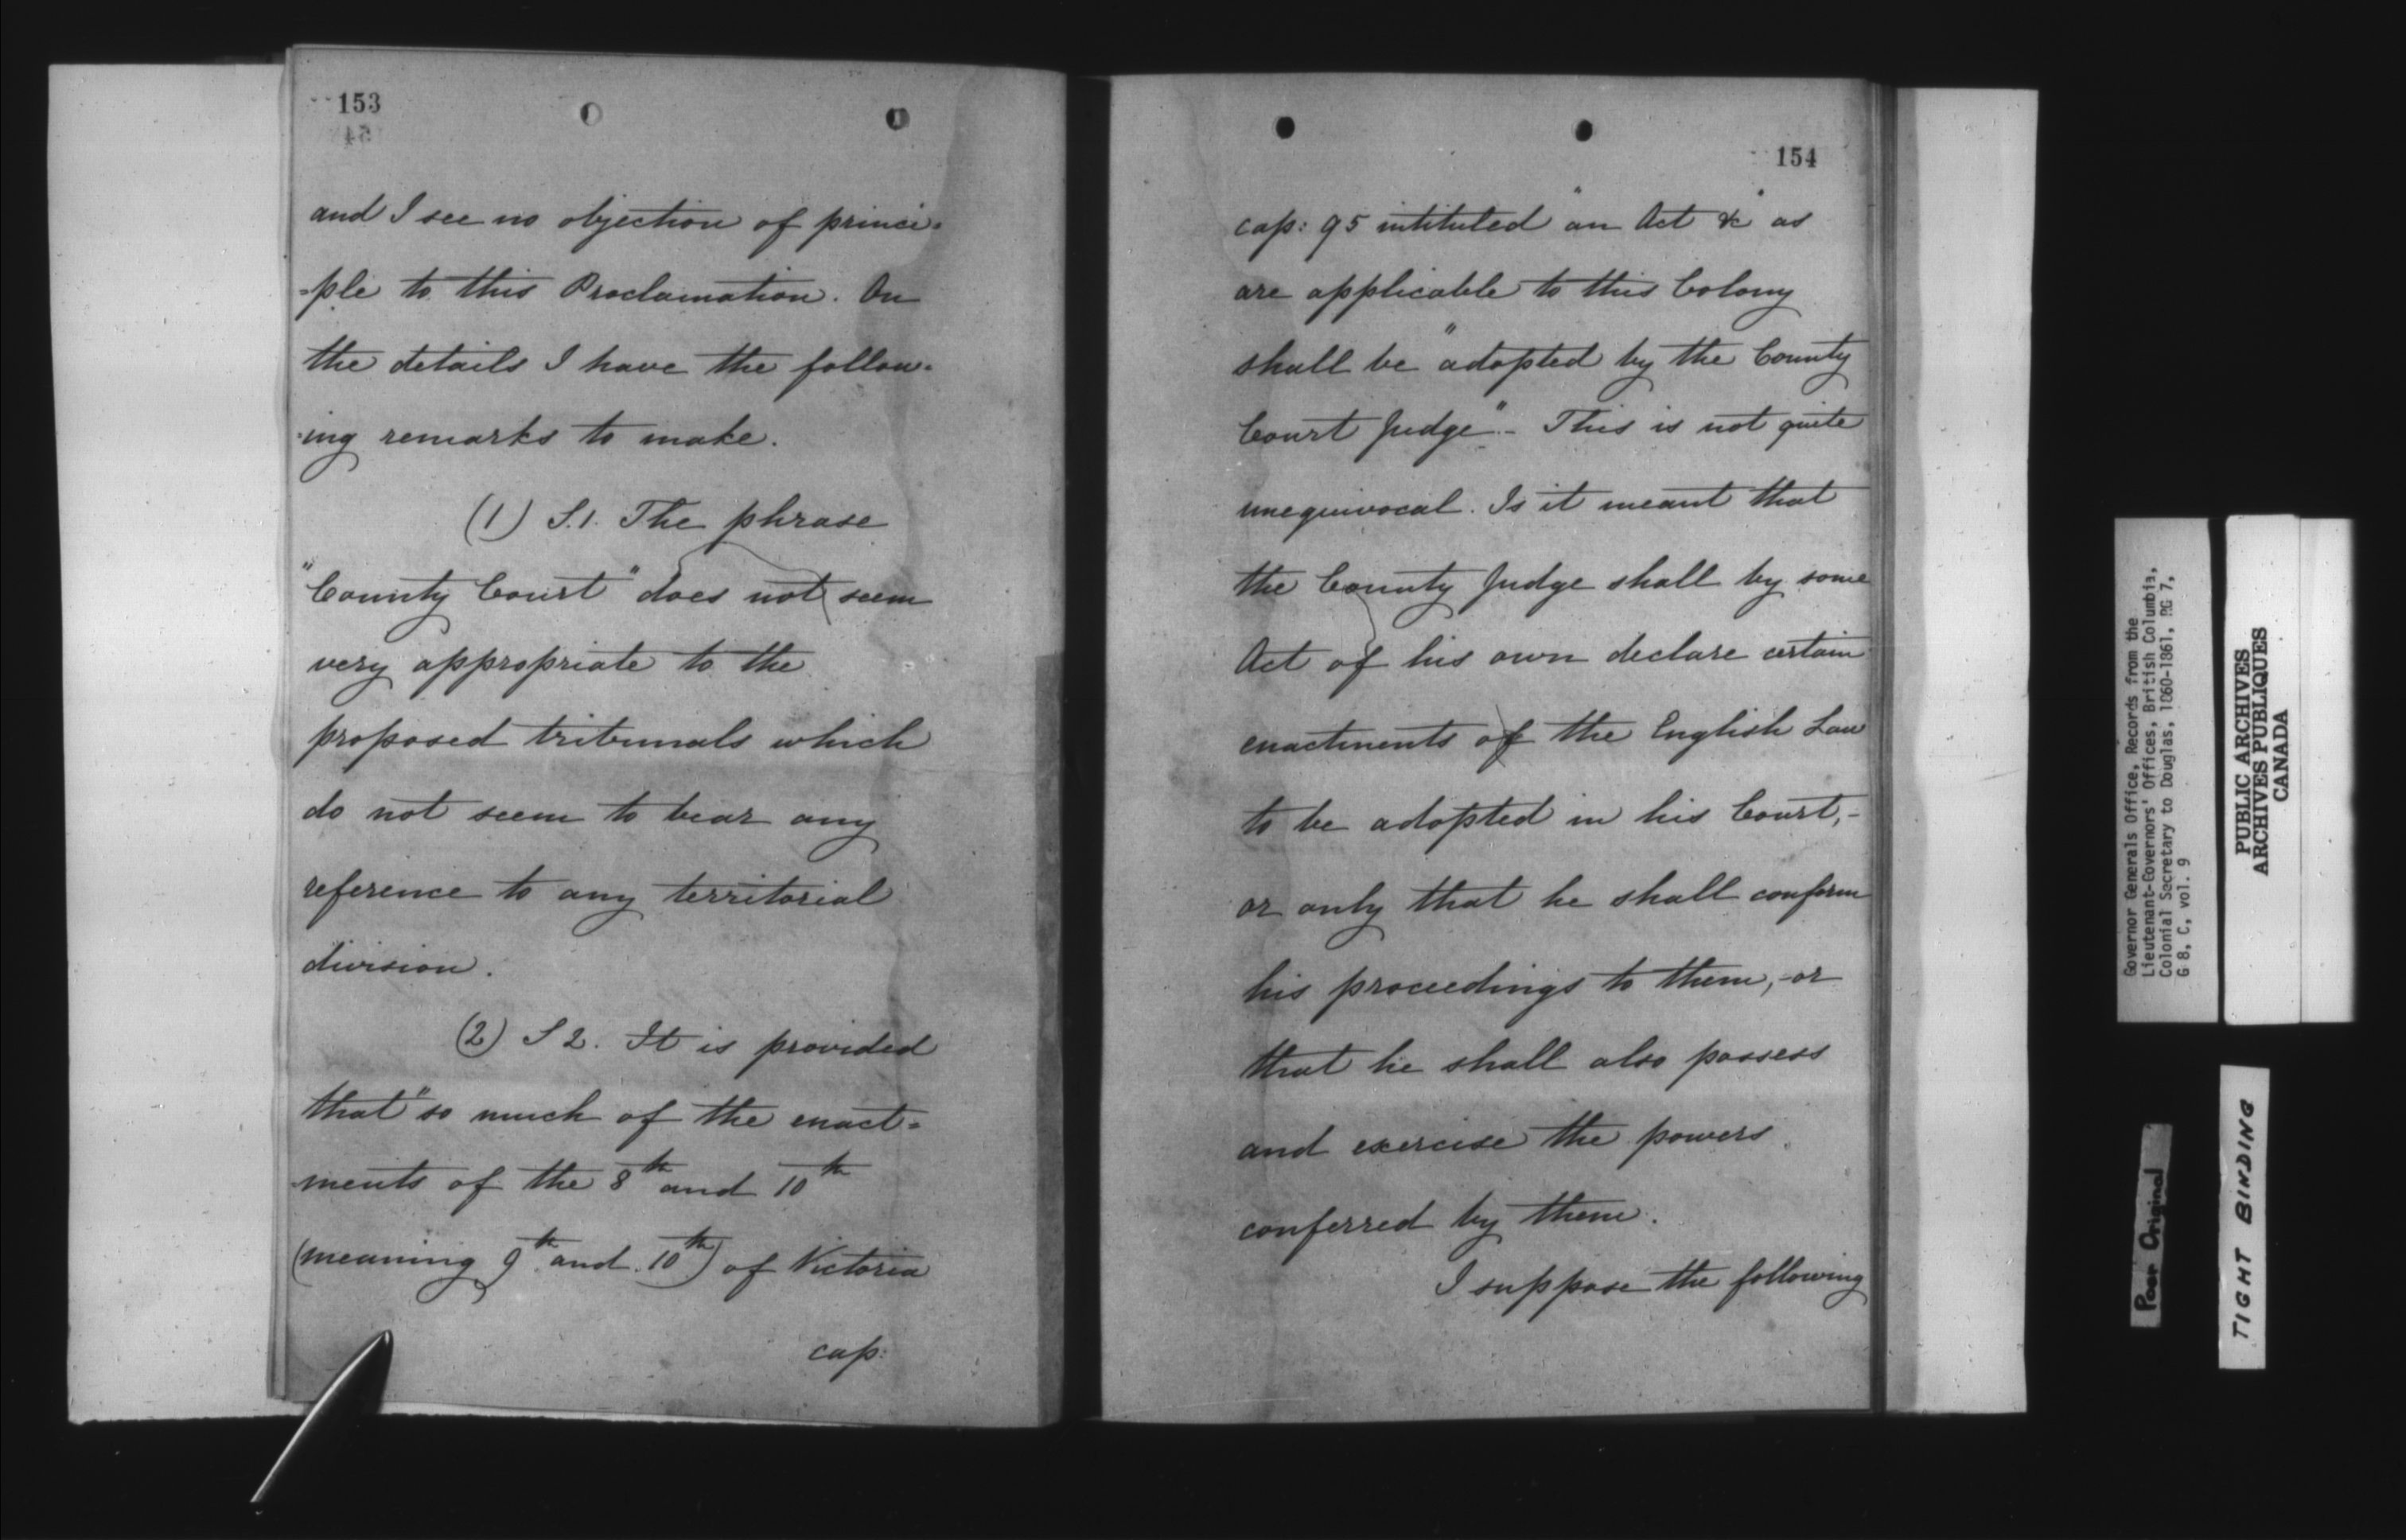 153
and I see no objection of princi=
=ple to this Proclamation. On
the details I have the follow=
=ing remarks to make.
(1) S.1. The phrase
"County Court" does not seem
very appropriate to the
proposed tribunals which
do not seem to bear any
reference to any territorial
division.
(2) S 2. It is provided
that "so much of the enact=
=ments of the 8th and 10th
(meaning 9th and 10th) of Victoria
cap:
154
cap: 95 intituled "an Act &c" as
are applicable to this Colony
shall be "adopted by the County
Court Judge".- This is not quite
unequivocal. Is it meant that
the County Judge shall by some
Act of his own declare certain
enactments of the English Law
to be adopted in his Court,-
or only that he shall conform
his proceedings to them,-or
that he shall also possess
and exercise the powers
conferred by them.
I suppose the following
Governor Generals Office, Records from the
Lieutenant-Governors' Offices, British Columbia,
Colonial Secretary to Douglas, 1860-1861, RG 7,
G 8, C, vol. 9
PUBLIC ARCHIVES
ARCHIVES PUBLIQUES
CANADA
Poor Original
TIGHT BINDING